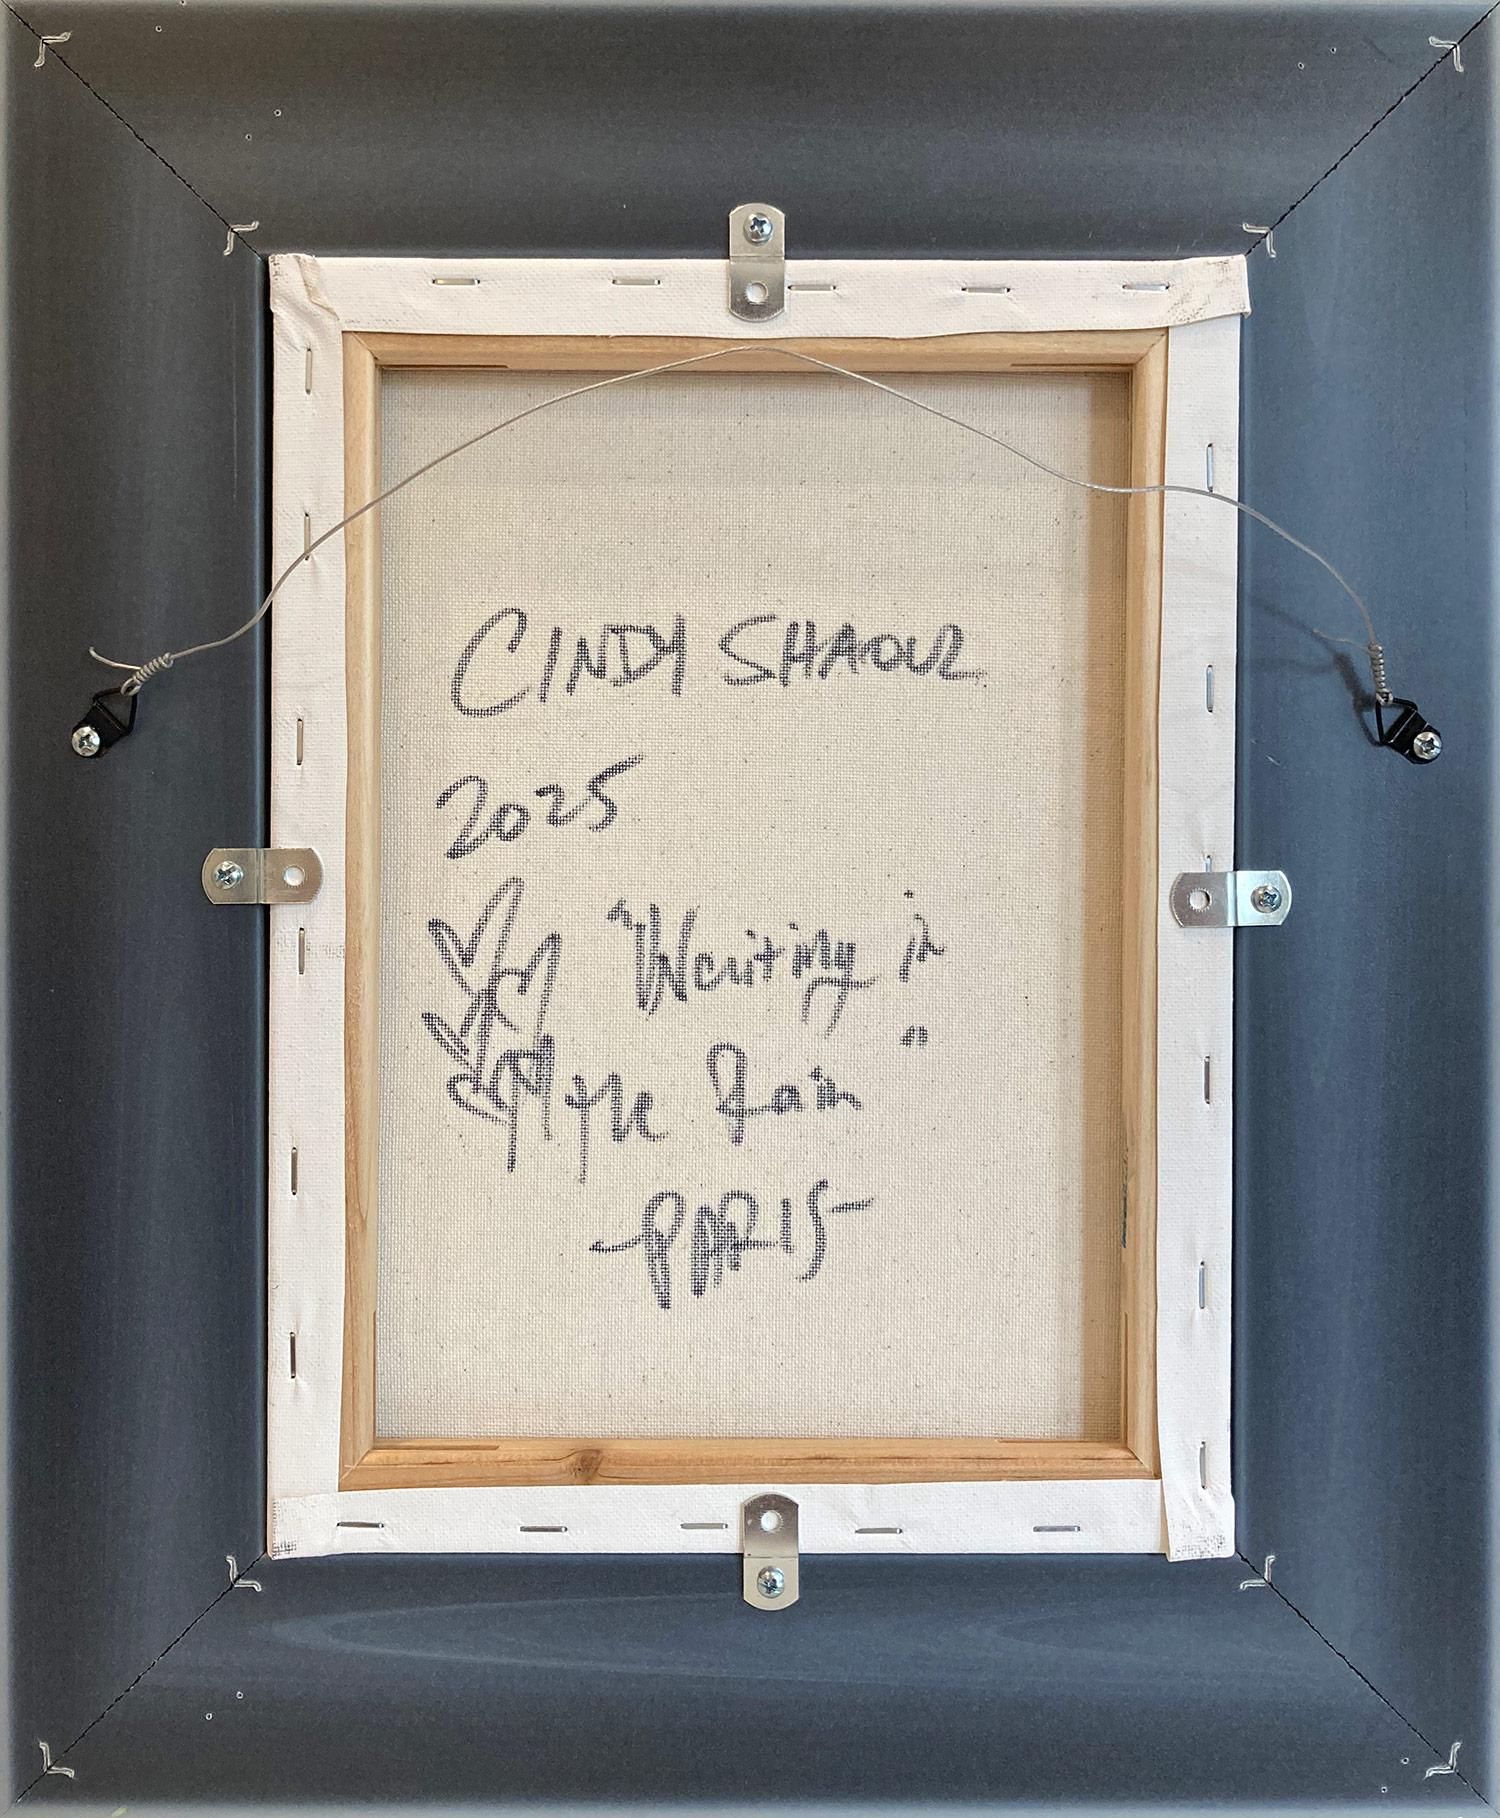 CINDY SHAOUL
2025
"Waiting in
the Rain"
-PARIS-